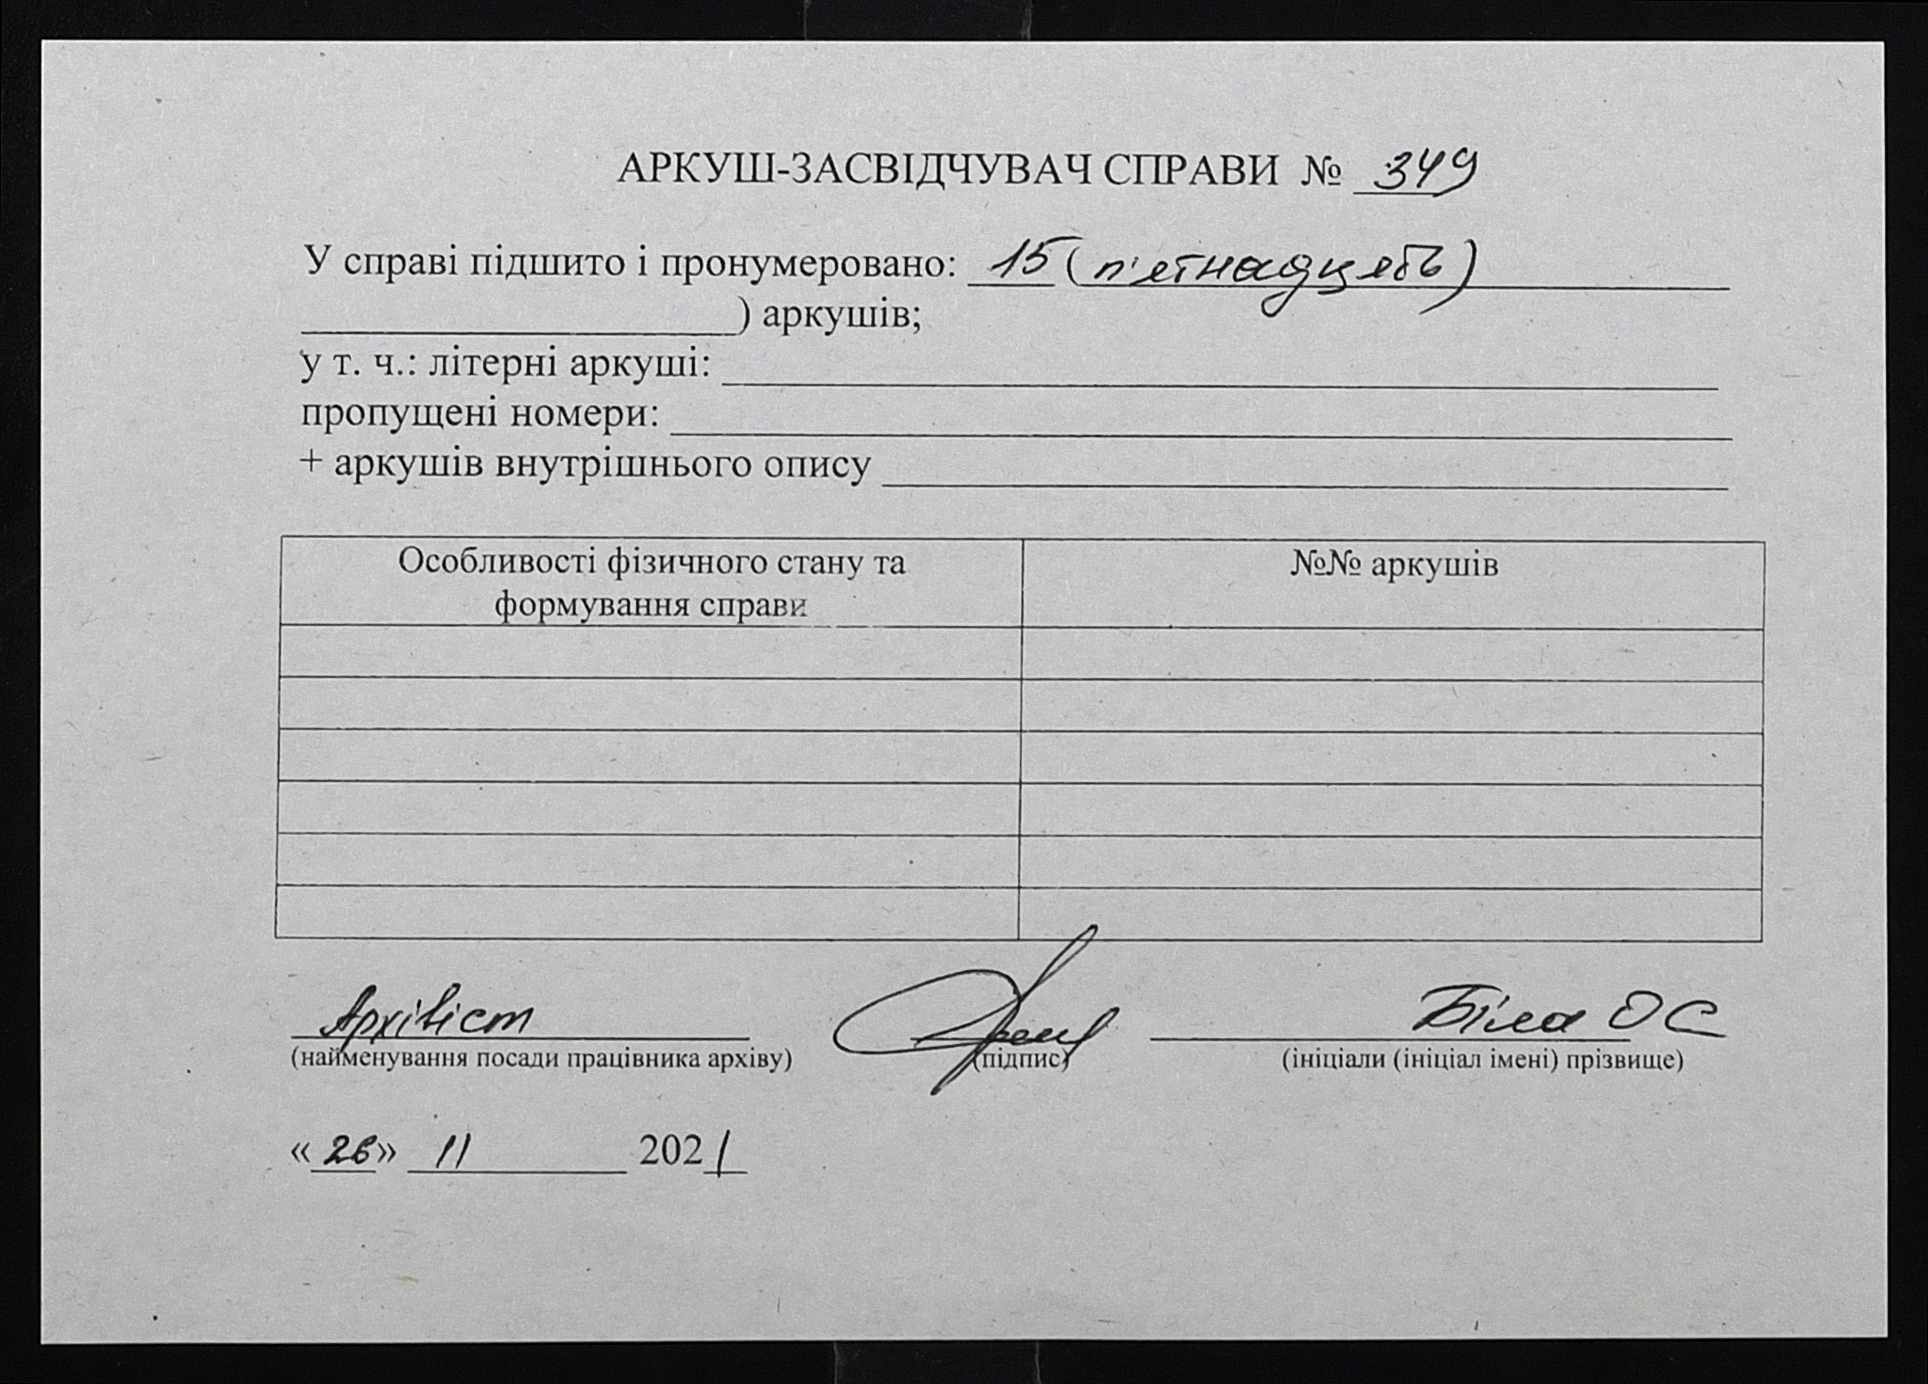 АРКУШ-ЗАСВІДЧУВАЧ СПРАВИ № 349
У справі підшито і пронумеровано: 15 (п'ятнадцять)
) аркушів;
у т. ч.: літерні аркуші:
пропущені номери:
+ аркушів внутрішнього опису
Особливості фізичного стану та
формування справи
№№ аркушів
Архівіст
Біла О С
(найменування посади працівника архіву) (підпис) (ініціали (ініціал імені) прізвище)
«26» 11 2021